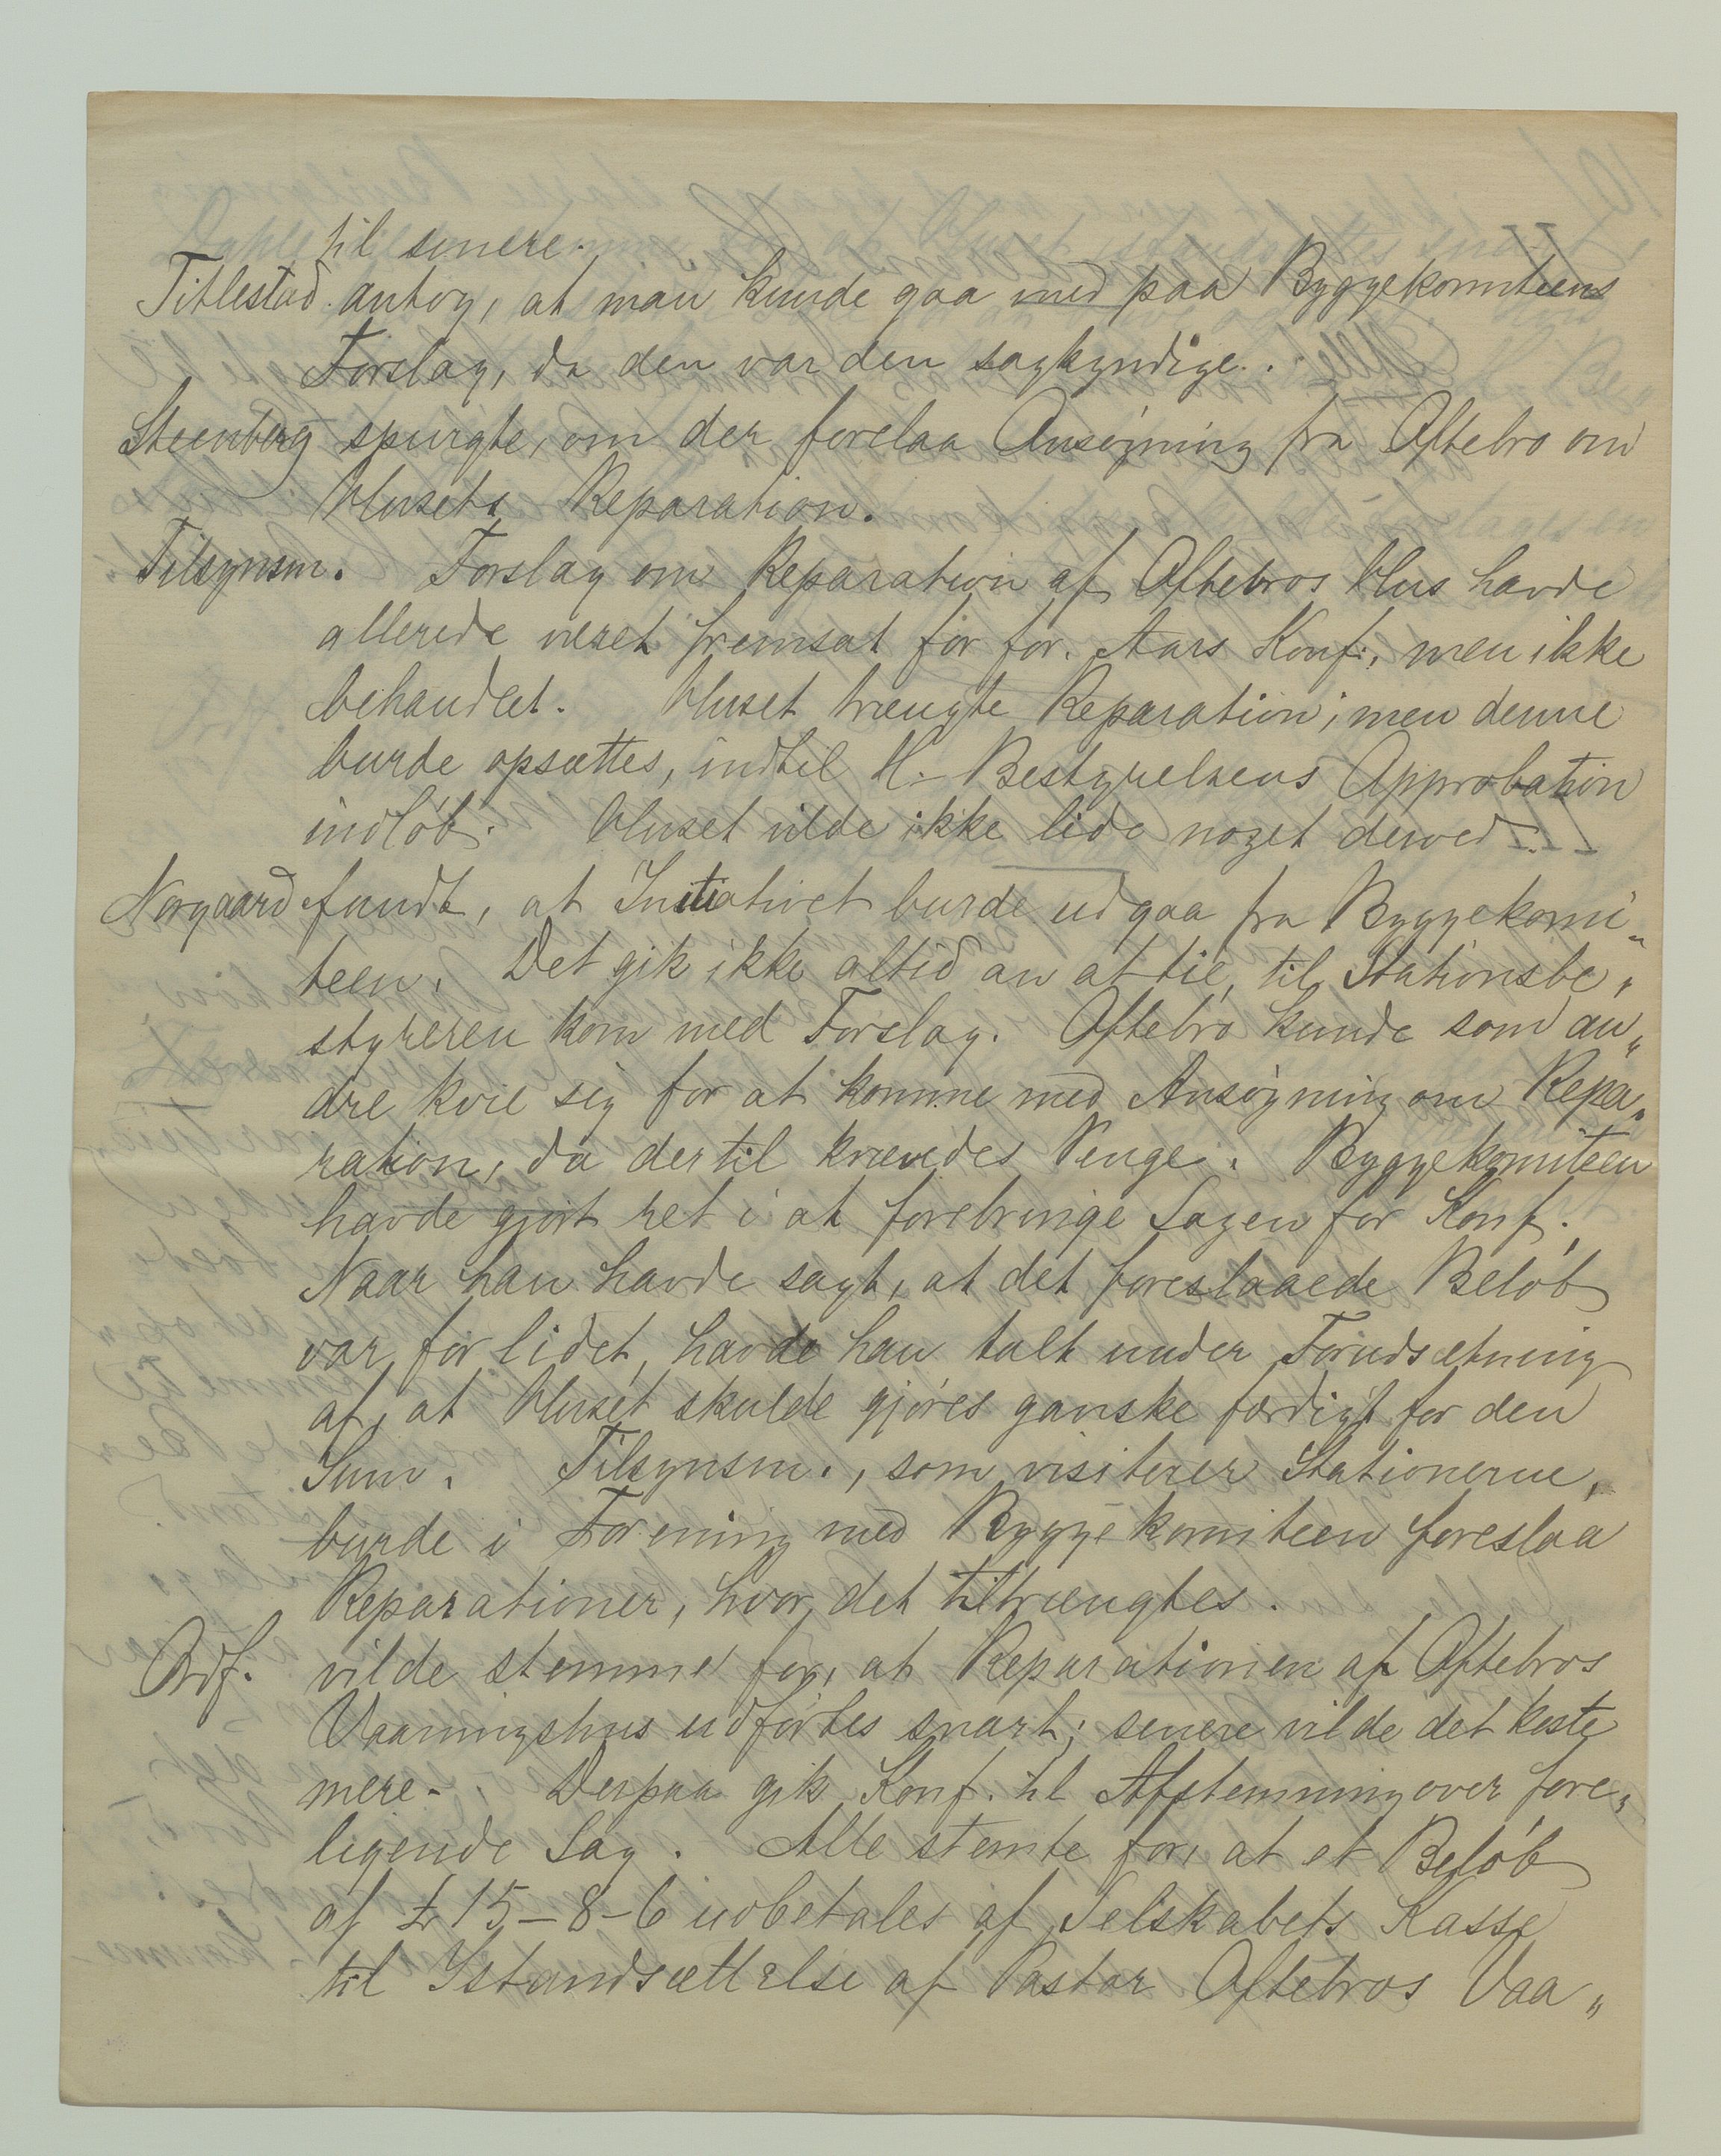 til senere.
Titlestad antog, at man kunde gaa med paa Byggekomiteens
Forslag, da den var den sagkyndige.
Steenberg spurgte, om der forelaa Ansøgning fra Oftebro om
Husets Reparation.
Tilsynsm. Forslag om Reparation af Oftebros Hus havde
allerede været fremsat for for. Aars Konf., men ikke
behandlet. Huset trængte Reparation; men denne
burde opsættes, indtil H.-Bestyrelsens Approbation
indløb. Huset vilde ikke lide noget derved.
Norgaard fandt, at Initiativet burde udgaa fra Byggekomi-
teen. Det gik ikke altid an at tie, til Stationsbe-
styreren kom med Forslag. Oftebro kunde som an-
dre kvie sig for at komme med Ansøgning om Repa-
ration, da dertil krævedes Penge. Byggekomiteen
havde gjort ret i at forebringe Sagen for Konf.
Naar han havde sagt, at det foreslaaede Beløb
var for lidet, havde han talt under Forudsætning
af, at Huset skulde gjøres ganske færdigt for den
Sum. Tilsynsm., som visiterer Stationerne,
burde i Forening med Byggekomiteen foreslaa
Reparationer, hvor det tiltrængtes.
Ordf. vilde stemme for, at Reparationen af Oftebros
Vaaningshus udførtes snart; senere vilde det koste
mere. Derpaa gik Konf. til Afstemning over fore-
ligende Sag. Alle stemte for, at et Beløb
af £ 15-8-6 udbetales af Selskabets Kasse
til Istandsættelse af Pastor Oftebros Vaa-